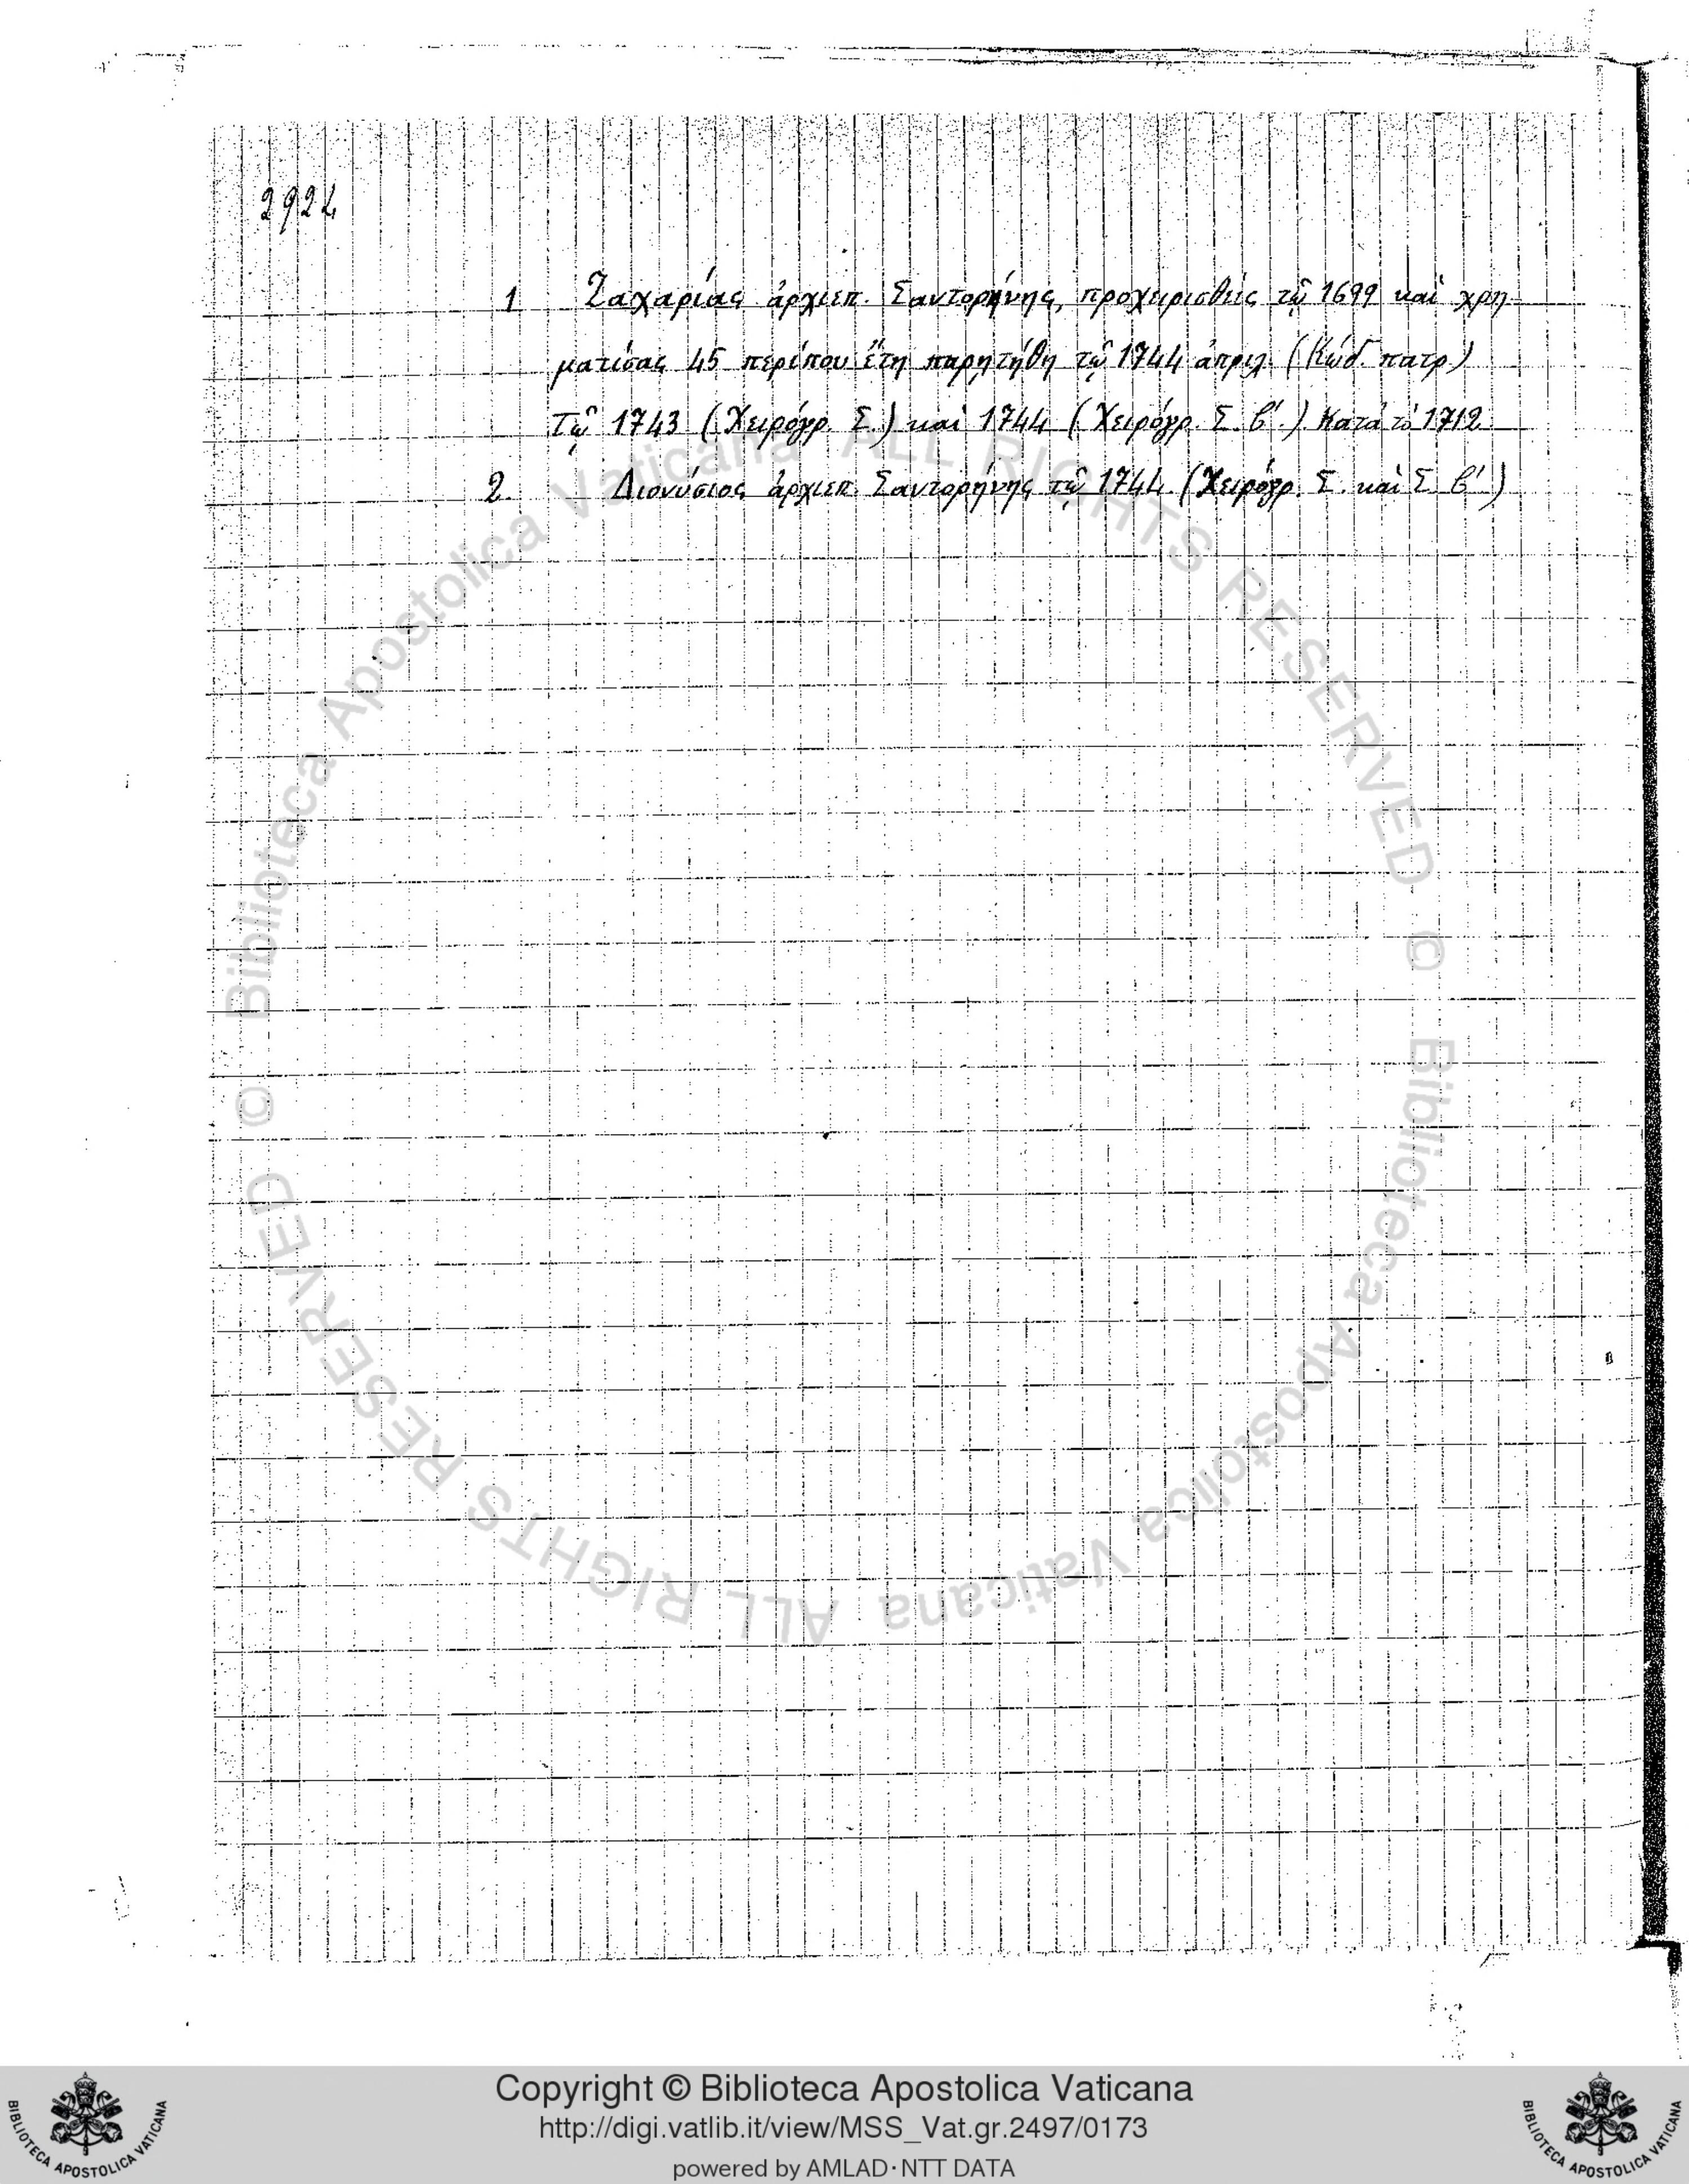 2924
1 Ζαχαρίας ἀρχιεπ. Σαντορήνης, προχειρισθεὶς τῷ 1699 καὶ χρη-
ματίσας 45 περίπου ἔτη παρητήθη τῷ 1744 ἀπριλ. (Κώδ. πατρ.)
Τῷ 1743 (Χειρόγρ. Σ.) καὶ 1744 (Χειρόγρ. Σ. β'.) Κατὰ τὸ 1712
2. Διονύσιος ἀρχιεπ. Σαντορήνης τῷ 1744. (Χειρόγρ. Σ. καὶ Σ. β')
© Biblioteca Apostolica Vaticana ALL RIGHTS RESERVED © Biblioteca Apostolica Vaticana ALL RIGHTS RESERVED
Copyright © Biblioteca Apostolica Vaticana
http://digi.vatlib.it/view/MSS_Vat.gr.2497/0173
powered by AMLAD·NTT DATA
BIBLIOTECA APOSTOLICA VATICANA
BIBLIOTECA APOSTOLICA VATICANA